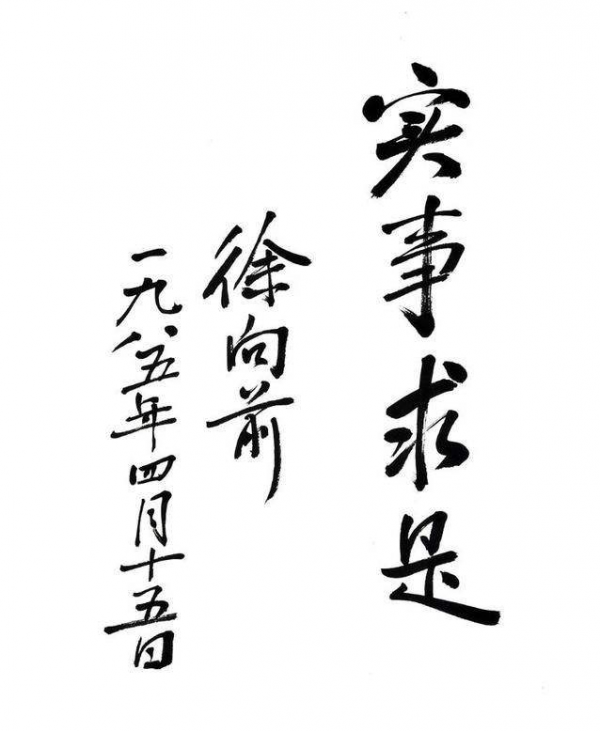 实事求是
徐向前
一九八五年四月十五日